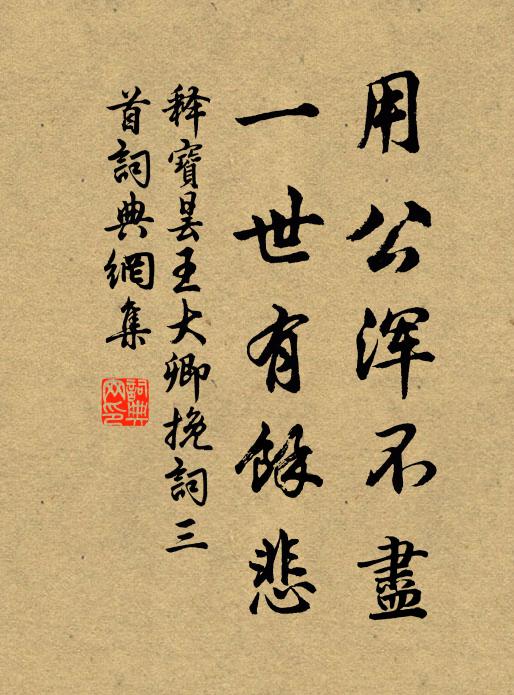 用公浑不盡
一世有餘悲
释寶曇王大卿挽詞三
首詞典網集
詞典
网印